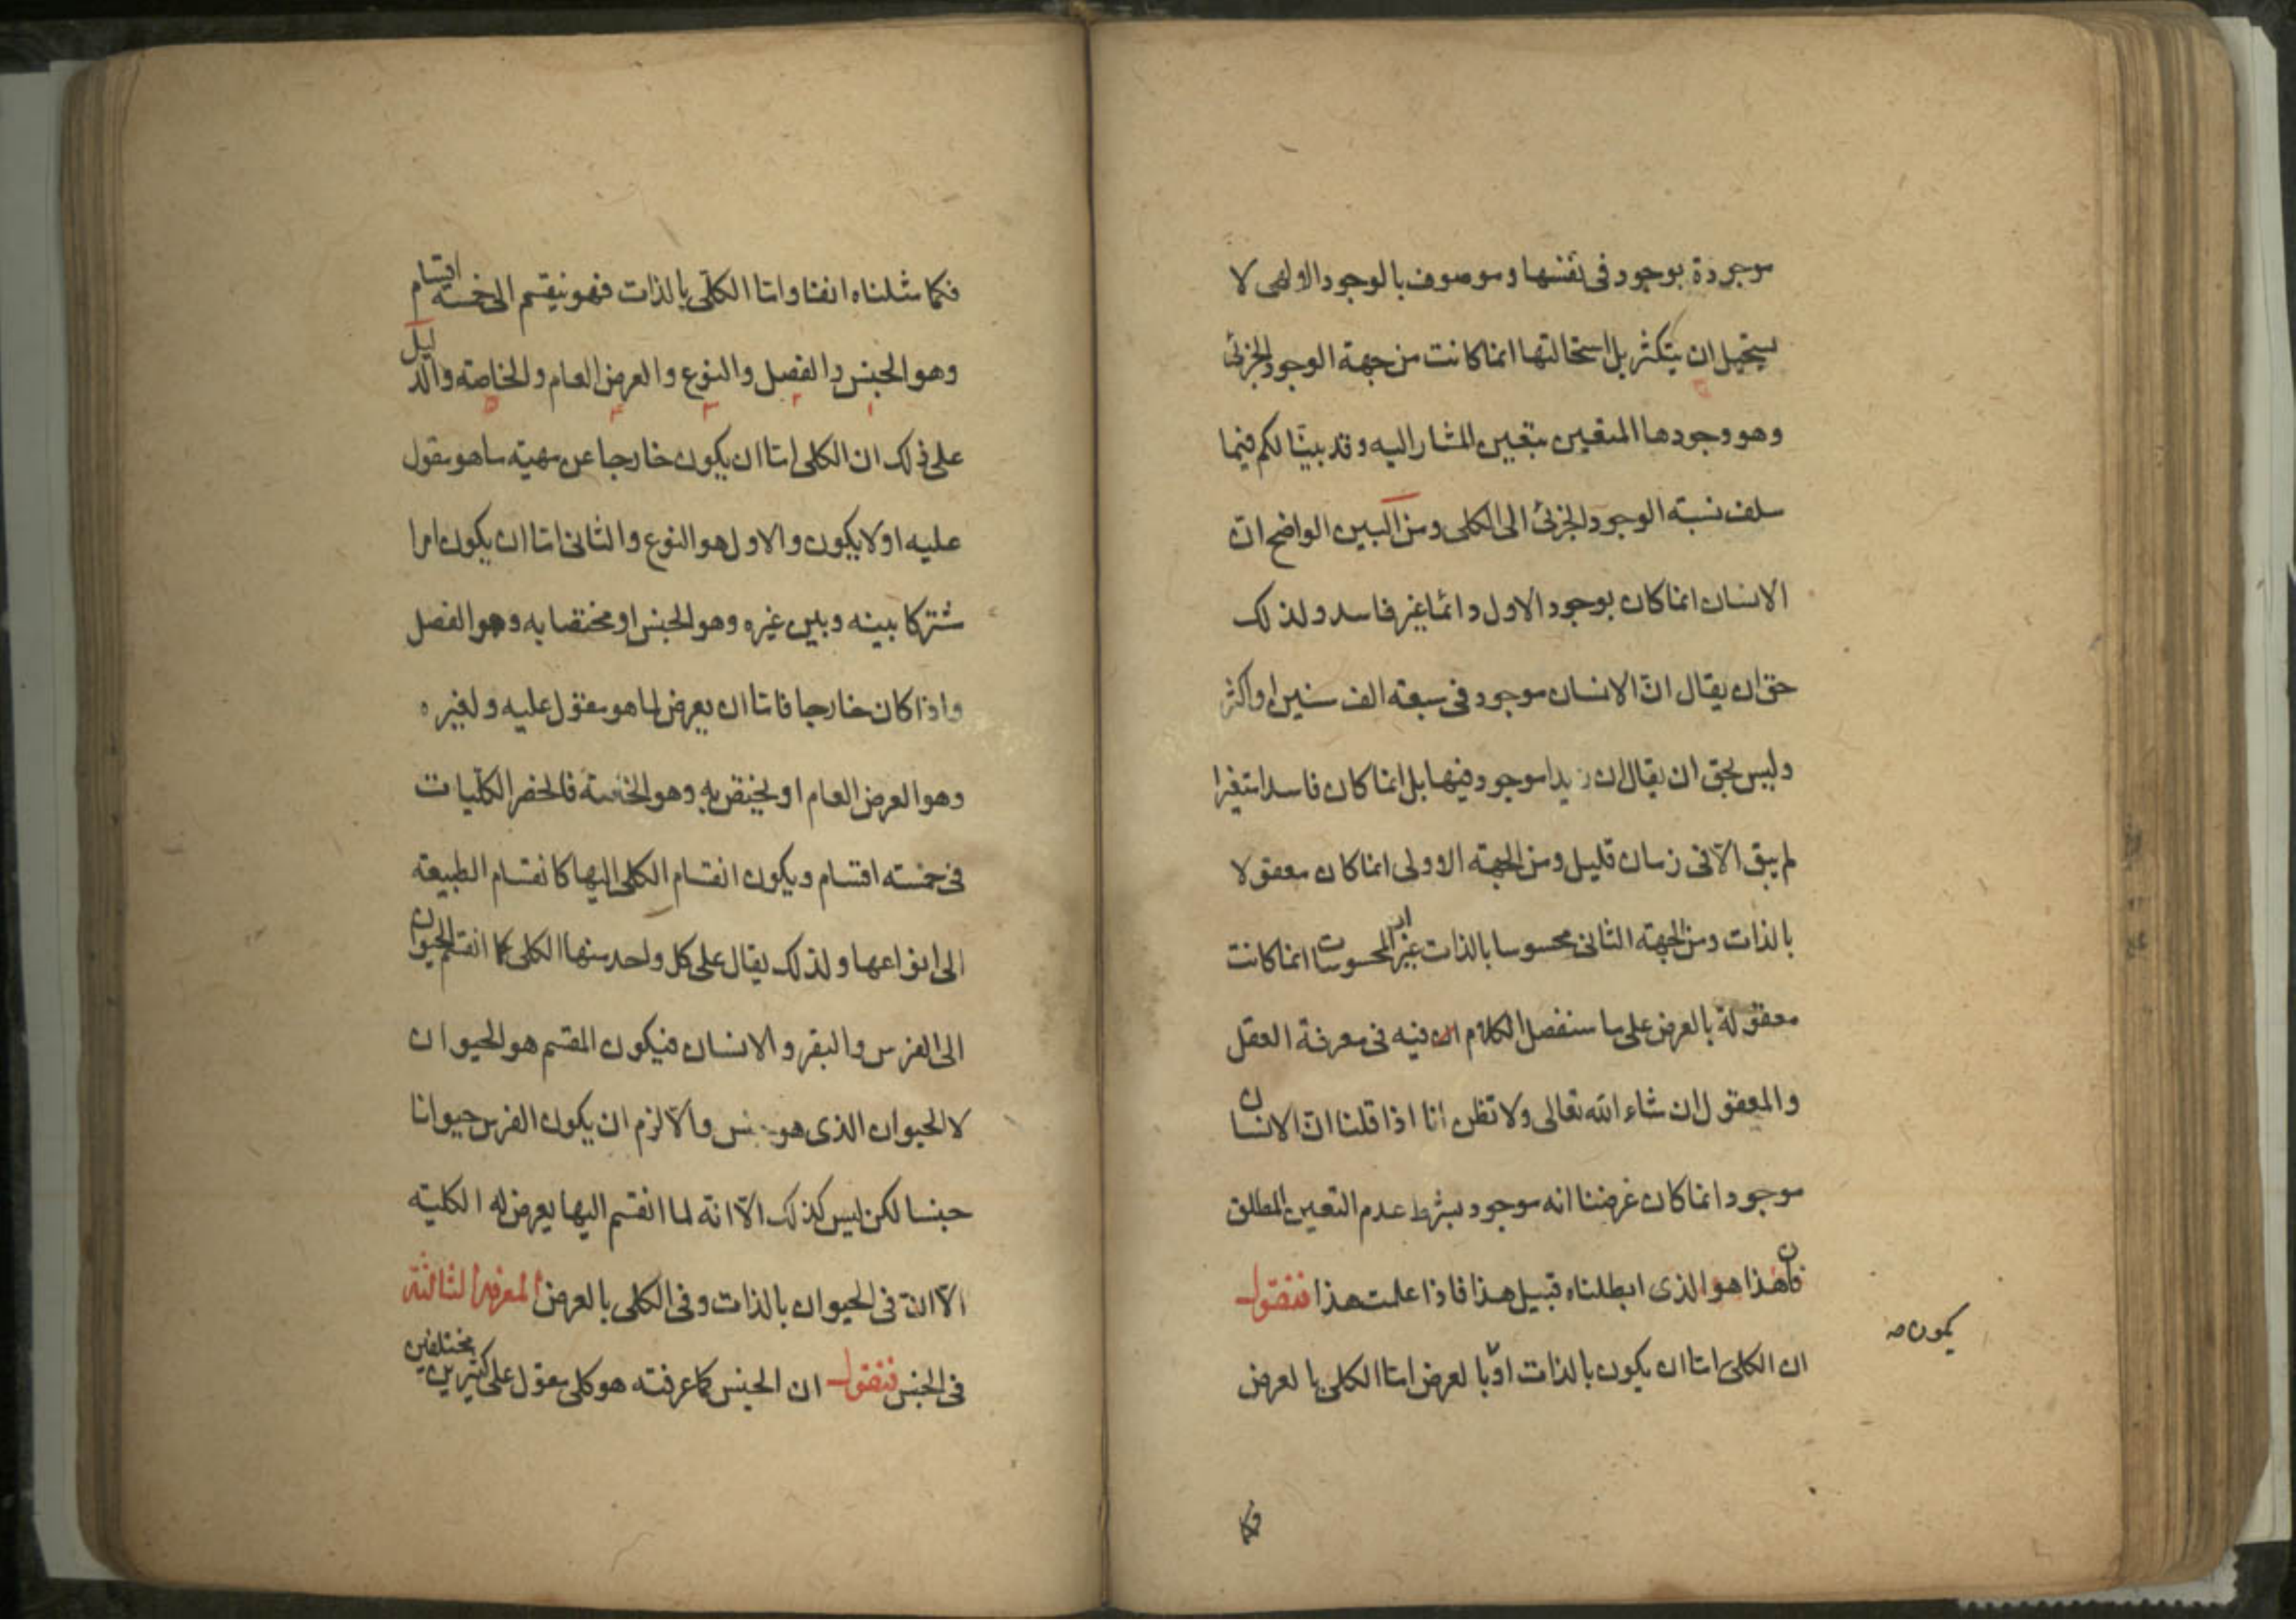 موجودة بوجود فى نفسها وموصوف بالوجود الالهى لا
يستحيل ان يتكثر بل استحالتها انما كانت من جهة الوجود الجزئى
وهو وجودها المتعين بتعين المشار اليه وقد بينا لكم فيما
سلف نسبته الوجود الجزئى الى الكلى ومن البين الواضح انّ
الانسان انما كان بوجود الاول دائما غير فاسد ولذلك
حق ان يقال انّ الانسان موجود فى سبعة الف سنين او اكثر
وليس بحق ان يقال ان زيدا موجود فيها بل انما كان فاسدا متغيرا
لم يبق الّا فى زمان قليل ومن الجهته الاولى انما كان معقولا
بالذات ومن الجهته الثانى محسوسا بالذات غير ان المحسوسات انما كانت
معقولة بالعرض على ما سنفصل الكلام فيه فى معرفة العقل
والمعقول ان شاء الله تعالى ولا تظن انا اذا قلنا انّ الانسان
موجود انما كان غرضنا انه موجود بشرط عدم التعين المطلق
فان هذا هو الذى ابطلناه قبيل هذا فاذا علمت هذا فنقول
يكون صه
ان الكلى امّا ان يكون بالذات او بالعرض امّا الكلى بالعرض
فكما
فكما مثلناه انفا وامّا الكلّى بالذات فهو ينقسم الى خمسته اقسام
وهو الجنس والفصل والنوع والعرض العام والخاصته والدليل
١ ٢ ٣ ٤ ٥
على ذلك ان الكلى امّا ان يكون خارجا عن مهيته ما هو مقول
عليه او لا يكون والاول هو النوع والثانى امّا ان يكون امرا
مشتركا بينه وبين غيره وهو الجنس او مختصا به وهو الفصل
واذا كان خارجا فامّا ان يعرض لما هو مقول عليه ولغيره
وهو العرض العام او يختص به وهو الخاصته فانحصر الكلّيات
فى خمسته اقسام ويكون انقسام الكلى اليها كانقسام الطبيعته
الى انواعها ولذلك يقال على كل واحد منها الكلى كما انقسم الحيوان
الى الفرس والبقر والانسان فيكون المقسم هو الحيوان
لا الحيوان الذى هو جنس والّا لزم ان يكون الفرس حيوانا
جنسا لكن ليس كذلك الّا انّه لما انقسم اليها يعرض له الكليته
الّا انّ فى الحيوان بالذات وفى الكلى بالعرض المعرفة الثالثة
فى الجنس فنقول ان الجنس كما عرفته هو كلى مقول على كثيرين مختلفين